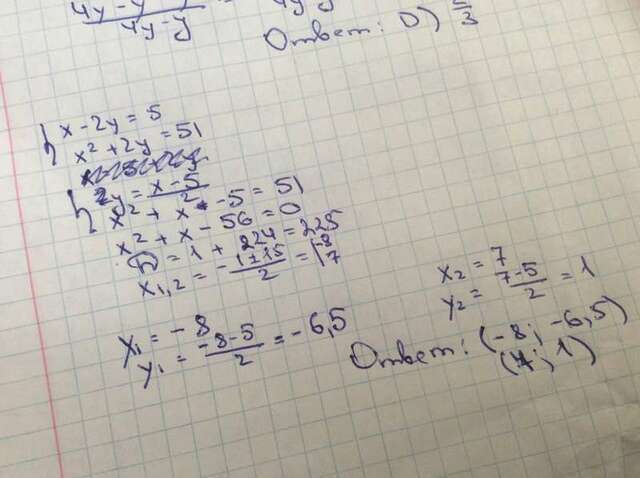 4y-y
Ответ: D) 2/3
{ x - 2y = 5
x² + 2y = 51
{ y = (x-5)/2
x² + x - 5 = 51
x² + x - 56 = 0
D = 1 + 224 = 225
x₁,₂ = (-1±15)/2 = [-8 7
x₁ = -8
y₁ = (-8-5)/2 = -6,5
x₂ = 7
y₂ = (7-5)/2 = 1
Ответ: (-8; -6,5)
(7; 1)